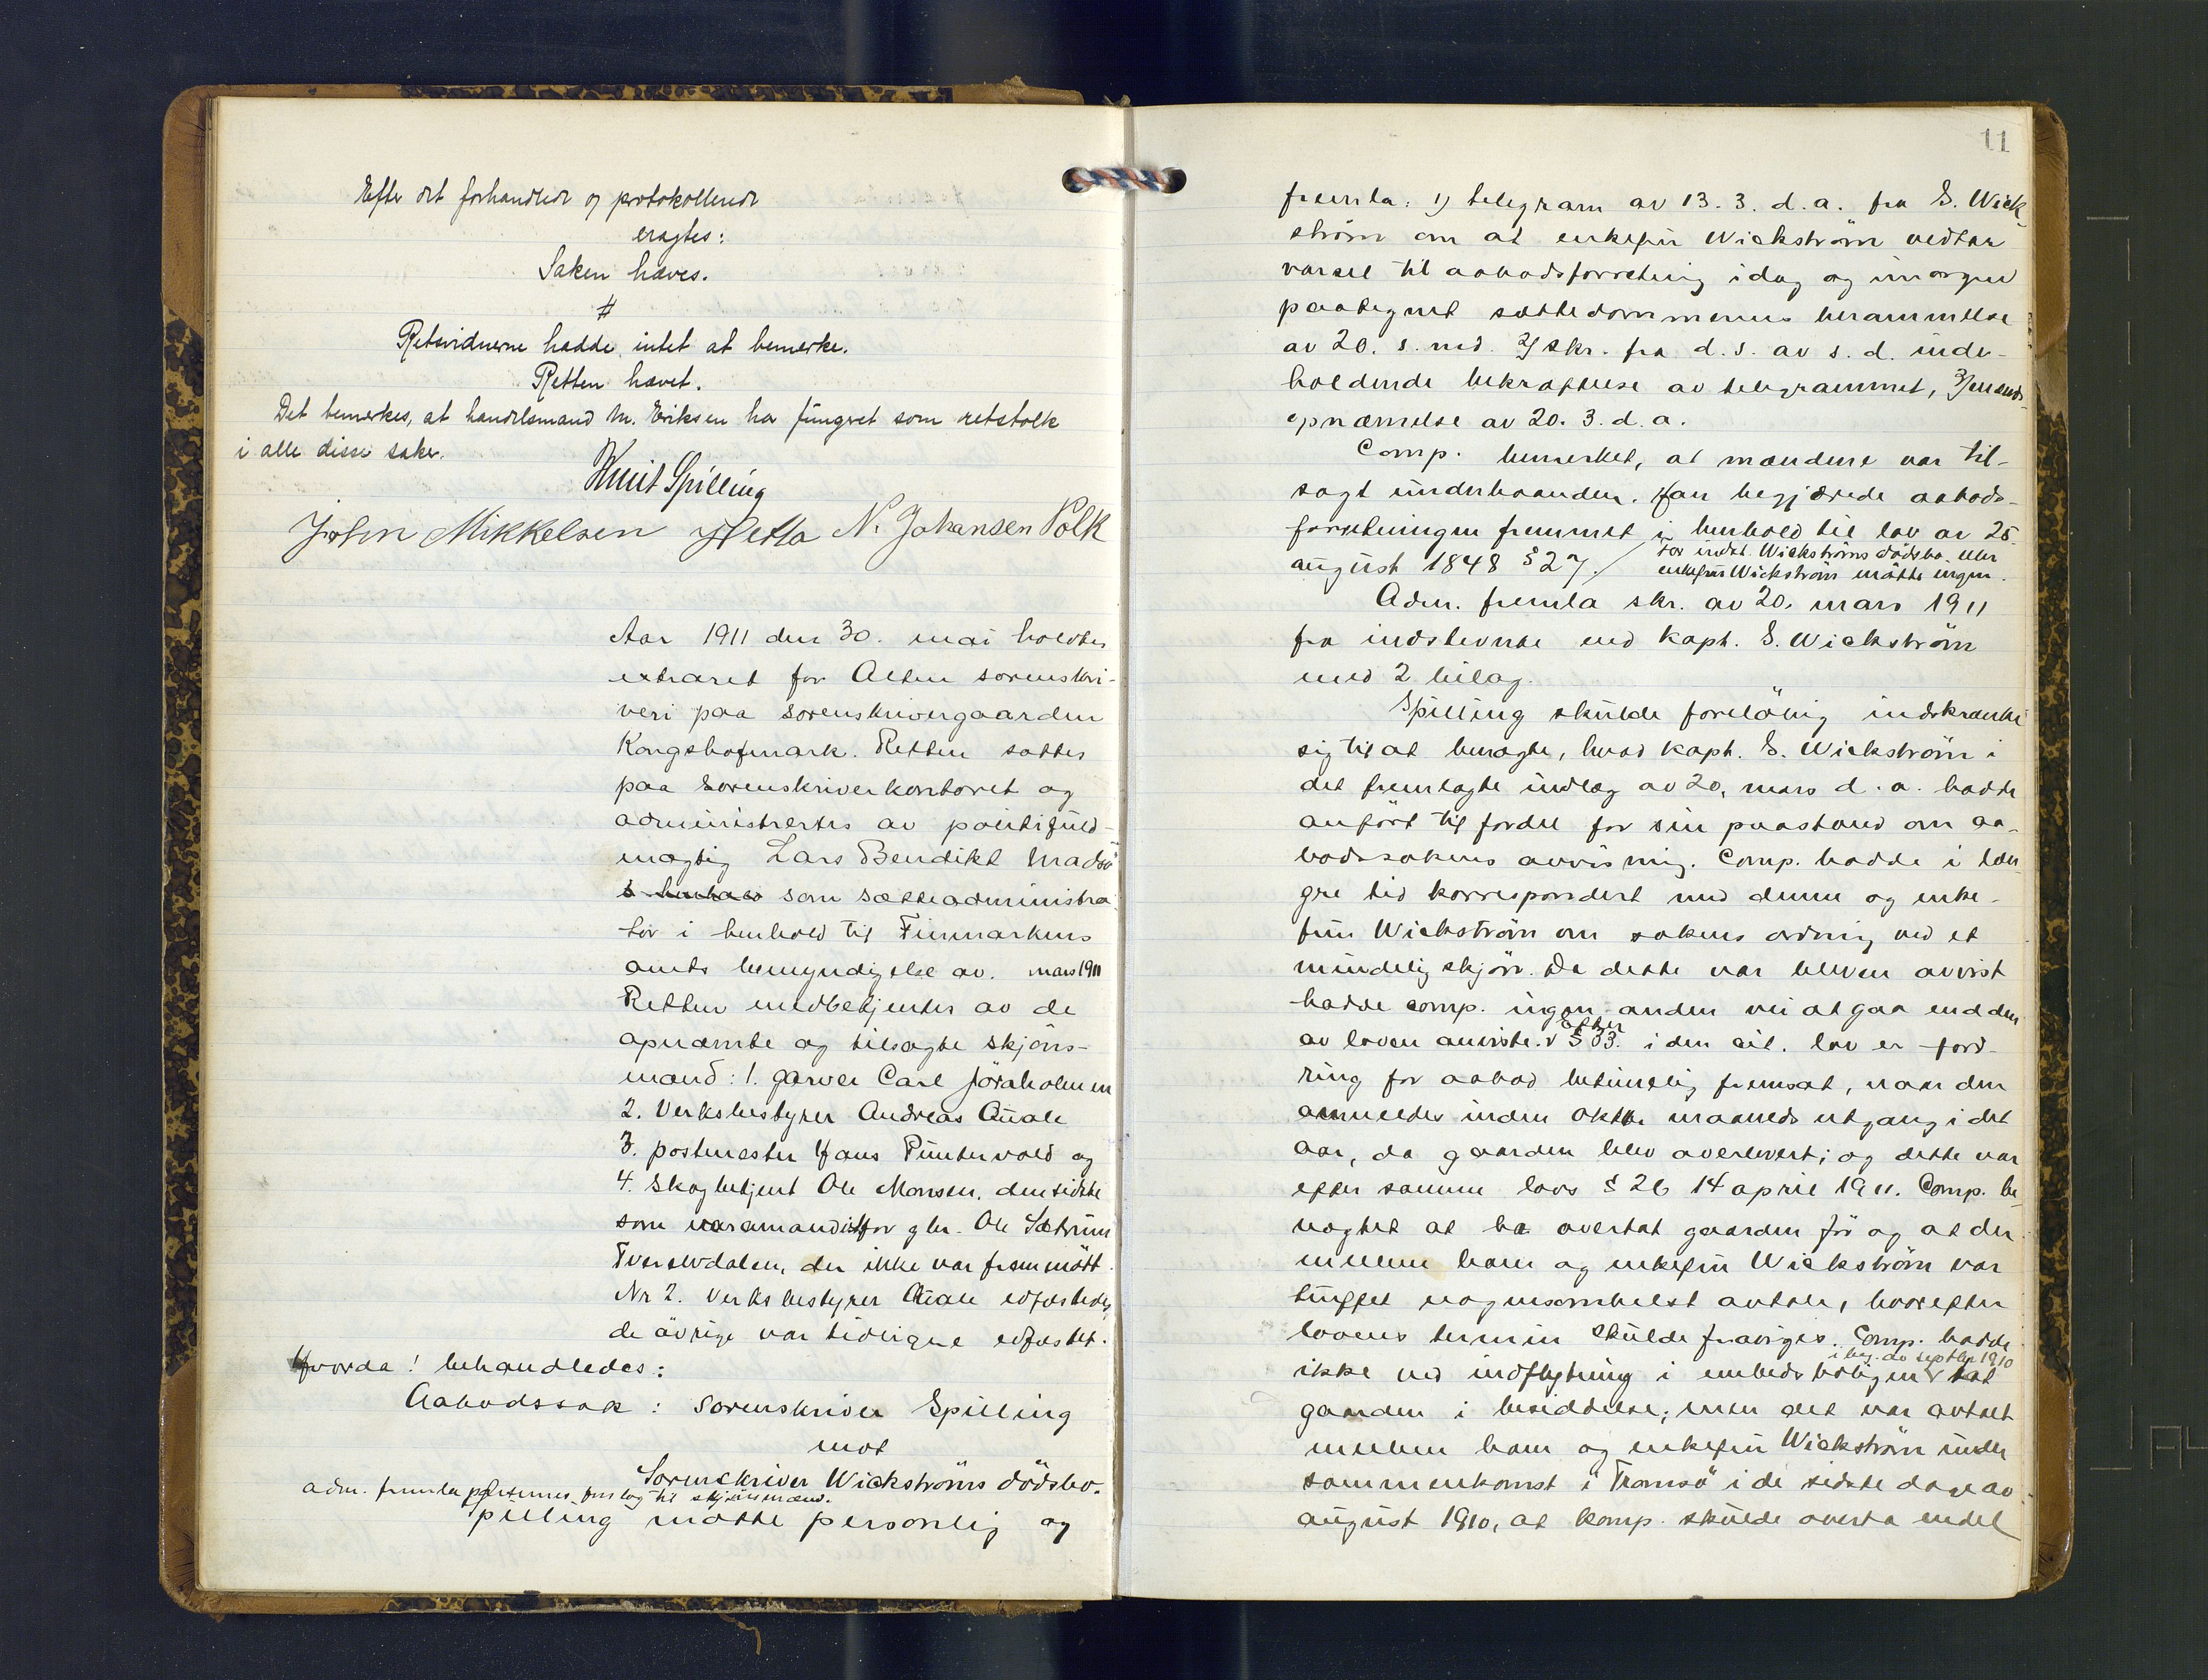 Efter det forhandlede og protokollerede
eragtes:
Saken hæves.
#
Retsvidnerne hadde intet at bemerke.
Retten hævet.
Det bemerkes, at handelsmand M. Eriksen har fungeret som retstolk
i alle disse saker.
Knut Spilling
John Mikkelsen Hetta N. Johansen Polk
Aar 1911 den 30. mai holdtes
extraret for Alten sorenskri-
veri paa sorenskrivergaarden
Kongshofmark. Retten sattes
paa sorenskriverkontoret og
administrertes av politifuld-
mægtig Lars Bendikt Madsø
som sætteadministra-
tor i henhold til Finmarkens
amts bemyndigelse av. mars 1911
Retten medbetjentes av de
opnævnte og tilsagte skjøns-
mænd: 1. garver Carl Jöraholmen
2. Verksbestyrer Andreas Quale
3. postmester Hans Puntervold og
4. Skogbetjent Ole Monsen, den sidste
som varamand for gbr. Ole Sætrum
Tverelvdalen, der ikke var frammött.
Nr 2. verksbestyrer Quale edfæstedes,
de övrige var tidligere edfæstet.
Hvorda! behandledes:
Aabodssak: sorenskriver Spilling
mot
Sorenskriver Wickströms dödsbo.
adm. fremla partenes forslag til skjönsmænd.
Spilling mötte personlig og
11
fremla: 1) telegram av 13. 3. d. a. fra S. Wick-
ström om at enkefru Wickström vedtar
varsel til aabodsforretning idag og imorgen
paategnet sættedommerens berammelse
av 20. s. md. 2) skr. fra d. s. av s. d. inde-
holdende bekræftelse av telegrammet, 3) mands-
opnævnelse av 20. 3. d. a.
Comp. bemerket, at mændene var til-
sagt underhaanden. Han begjærede aabods-
forretningen fremmet i henhold til lov av 25
august 1848 § 27. / For indst. Wickströms dödsbo eller
enkefru Wickström mötte ingen.
Adm. fremla skr. av 20. mars 1911
fra indstevnte ved kapt. S. Wickström
med 2 bilag.
Spilling skulde foreløbig indskrænke
sig til at benægte, hvad kapt. S. Wickström i
det fremlagte indlæg av 20. mars d. a. hadde
anført til fordel for sin paastand om aa-
bodssakens avvisning. Comp. hadde i læn-
gre tid korrespondert med denne og enke-
fru Wickström om sakens ordning ved et
mindelig skjön. Da dette var bleven avvist
hadde comp. ingen anden vei at gaa end den
av loven anviste. v efter § 33. i den cit. lov er ford-
ring for aabod betimelig fremsat, naar den
anmeldes inden oktbr. maaneds utgang i det
aar, da gaarden blev overlevert; og dette var
efter samme lovs § 26 14 april 1911. Comp. be-
nægtet at ha overtat gaarden för og at der
mellem ham og enkefru Wickström var
truffet nogensomhelst avtale, hvorefter
lovens termin skulde fraviges. Comp. hadde
ikke ved indflytning i embedsboligen v i beg. av septbr 1910 tat
gaarden i besiddelse; men det var avtalt
mellem ham og enkefru Wickström under
sammenkomst i Tromsö i de sidste dage av
august 1910, at komp. skulde overta endel